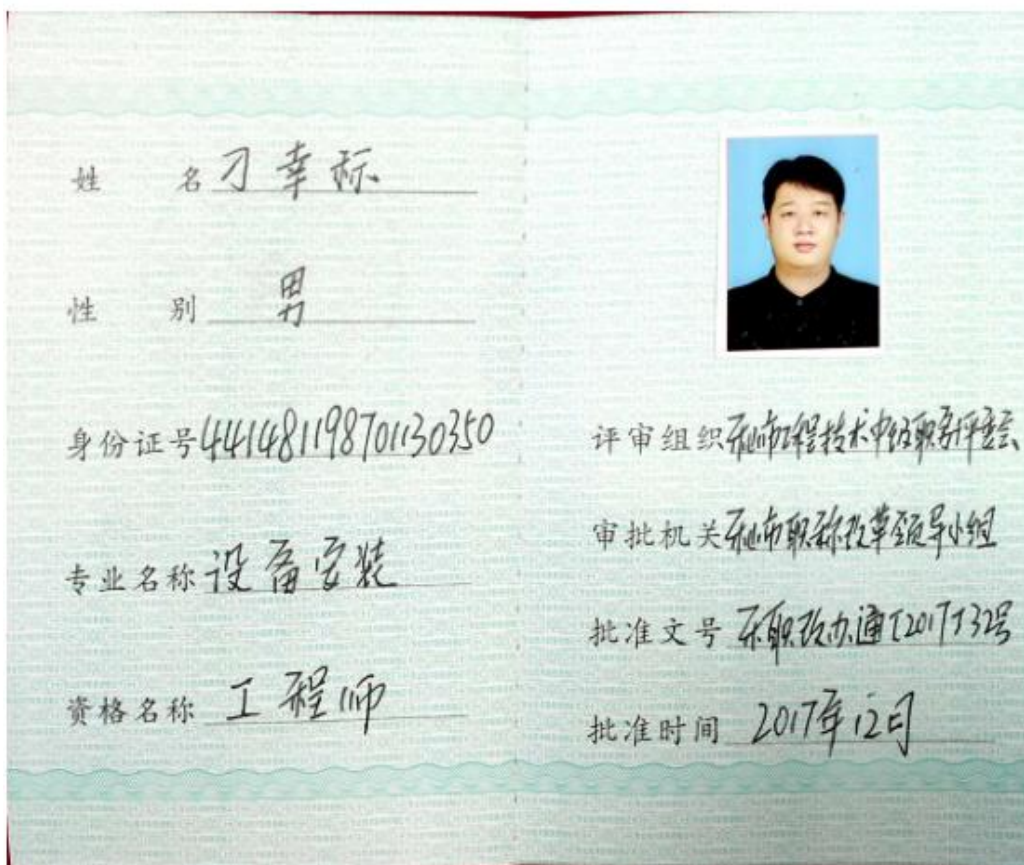 姓 名 刁幸标
性 别 男
身份证号 441481198701130350
专业名称 设备安装
资格名称 工程师
评审组织 乐山市工程技术中级职务评委会
审批机关 乐山市职称改革领导小组
批准文号 乐职改办通[2017]32号
批准时间 2017年12月